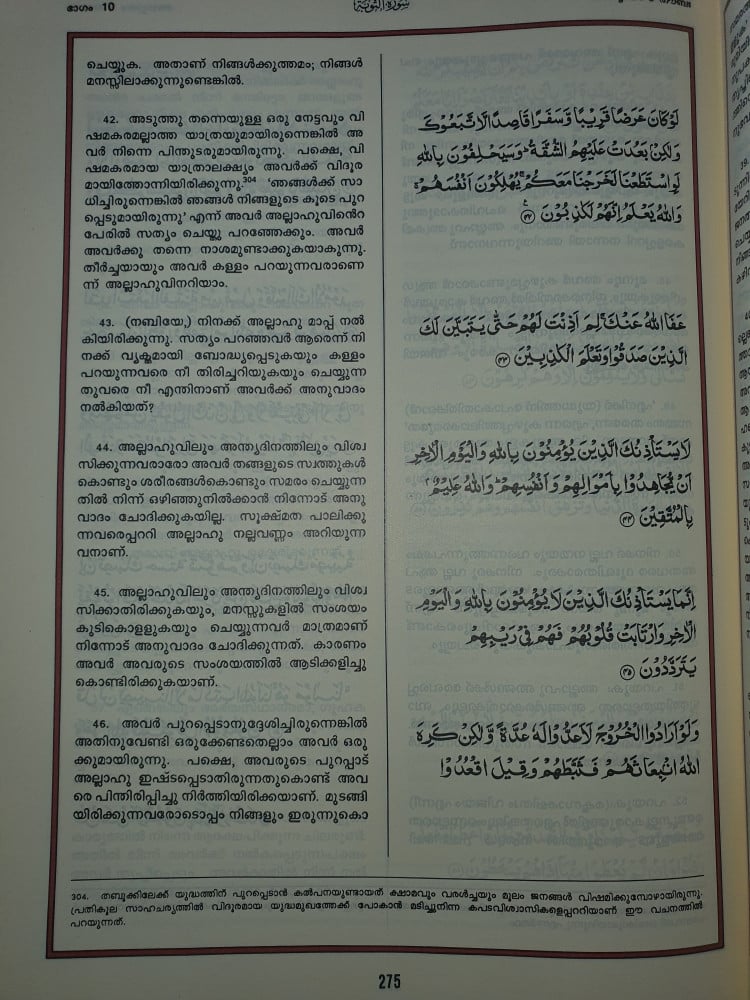 ഭാഗം 10
سورة التوبة
ചെയ്യുക. അതാണ് നിങ്ങൾക്കുത്തമം; നിങ്ങൾ
മനസ്സിലാക്കുന്നുണ്ടെങ്കിൽ.
42. അടുത്തു തന്നെയുള്ള ഒരു നേട്ടവും വി
ഷമകരമല്ലാത്ത യാത്രയുമായിരുന്നെങ്കിൽ അ
വർ നിന്നെ പിന്തുടരുമായിരുന്നു. പക്ഷെ, വി
ഷമകരമായ യാത്രാലക്ഷ്യം അവർക്ക് വിദൂര
മായിത്തോന്നിയിരിക്കുന്നു.304 'ഞങ്ങൾക്ക് സാ
ധിച്ചിരുന്നെങ്കിൽ ഞങ്ങൾ നിങ്ങളുടെ കൂടെ പുറ
പ്പെടുമായിരുന്നു' എന്ന് അവർ അല്ലാഹുവിൻെറ
പേരിൽ സത്യം ചെയ്തു പറഞ്ഞേക്കും. അവർ
അവർക്കു തന്നെ നാശമുണ്ടാക്കുകയാകുന്നു.
തീർച്ചയായും അവർ കള്ളം പറയുന്നവരാണെ
ന്ന് അല്ലാഹുവിനറിയാം.
43. (നബിയേ,) നിനക്ക് അല്ലാഹു മാപ്പ് നൽ
കിയിരിക്കുന്നു. സത്യം പറഞ്ഞവർ ആരെന്ന് നി
നക്ക് വ്യക്തമായി ബോദ്ധ്യപ്പെടുകയും കള്ളം
പറയുന്നവരെ നീ തിരിച്ചറിയുകയും ചെയ്യുന്ന
തുവരെ നീ എന്തിനാണ് അവർക്ക് അനുവാദം
നൽകിയത്?
44. അല്ലാഹുവിലും അന്ത്യദിനത്തിലും വിശ്വ
സിക്കുന്നവരാരോ അവർ തങ്ങളുടെ സ്വത്തുകൾ
കൊണ്ടും ശരീരങ്ങൾകൊണ്ടും സമരം ചെയ്യുന്ന
തിൽ നിന്ന് ഒഴിഞ്ഞുനിൽക്കാൻ നിന്നോട് അനു
വാദം ചോദിക്കുകയില്ല. സൂക്ഷ്മത പാലിക്കു
ന്നവരെപ്പററി അല്ലാഹു നല്ലവണ്ണം അറിയുന്ന
വനാണ്.
45. അല്ലാഹുവിലും അന്ത്യദിനത്തിലും വിശ്വ
സിക്കാതിരിക്കുകയും, മനസ്സുകളിൽ സംശയം
കുടികൊളളുകയും ചെയ്യുന്നവർ മാത്രമാണ്
നിന്നോട് അനുവാദം ചോദിക്കുന്നത്. കാരണം
അവർ അവരുടെ സംശയത്തിൽ ആടിക്കളിച്ചു
കൊണ്ടിരിക്കുകയാണ്.
46. അവർ പുറപ്പെടാനുദ്ദേശിച്ചിരുന്നെങ്കിൽ
അതിനുവേണ്ടി ഒരുക്കേണ്ടതെല്ലാം അവർ ഒരു
ക്കുമായിരുന്നു. പക്ഷെ, അവരുടെ പുറപ്പാട്
അല്ലാഹു ഇഷ്ടപ്പെടാതിരുന്നതുകൊണ്ട് അവ
രെ പിന്തിരിപ്പിച്ചു നിർത്തിയിരിക്കയാണ്. മുടങ്ങി
യിരിക്കുന്നവരോടൊപ്പം നിങ്ങളും ഇരുന്നുകൊ
لَوْ كَانَ عَرَضًا قَرِيبًا وَّسَفَرًا قَاصِدًا لَّاتَّبَعُوكَ
وَلَٰكِنْ بَعُدَتْ عَلَيْهِمُ الشُّقَّةُ ۚ وَسَيَحْلِفُونَ بِاللّٰهِ
لَوِ اسْتَطَعْنَا لَخَرَجْنَا مَعَكُمْ ۚ يُهْلِكُونَ اَنْفُسَهُمْ ۚ
وَاللّٰهُ يَعْلَمُ اِنَّهُمْ لَكٰذِبُوْنَ ﴿٤٢﴾
عَفَا اللّٰهُ عَنْكَ ۚ لِمَ اَذِنْتَ لَهُمْ حَتّٰى يَتَبَيَّنَ لَكَ
الَّذِيْنَ صَدَقُوْا وَتَعْلَمَ الْكٰذِبِيْنَ ﴿٤٣﴾
لَا يَسْتَأْذِنُكَ الَّذِيْنَ يُؤْمِنُوْنَ بِاللّٰهِ وَالْيَوْمِ الْاٰخِرِ
اَنْ يُّجَاهِدُوْا بِاَمْوَالِهِمْ وَاَنْفُسِهِمْ ؕ وَاللّٰهُ عَلِيْمٌ ۢ
بِالْمُتَّقِيْنَ ﴿٤٤﴾
اِنَّمَا يَسْتَأْذِنُكَ الَّذِيْنَ لَا يُؤْمِنُوْنَ بِاللّٰهِ وَالْيَوْمِ
الْاٰخِرِ وَارْتَابَتْ قُلُوْبُهُمْ فَهُمْ فِيْ رَيْبِهِمْ
يَتَرَدَّدُوْنَ ﴿٤٥﴾
وَلَوْ اَرَادُوا الْخُرُوْجَ لَاَعَدُّوْا لَهٗ عُدَّةً وَّلٰكِنْ كَرِهَ
اللّٰهُ انْۢبِعَاثَهُمْ فَثَبَّطَهُمْ وَقِيْلَ اقْعُدُوْا
304. തബൂക്കിലേക്ക് യുദ്ധത്തിന് പുറപ്പെടാൻ കൽപനയുണ്ടായത് ക്ഷാമവും വരൾച്ചയും മൂലം ജനങ്ങൾ വിഷമിക്കുമ്പോഴായിരുന്നു.
പ്രതികൂല സാഹചര്യത്തിൽ വിദൂരമായ യുദ്ധമുഖത്തേക്ക് പോകാൻ മടിച്ചുനിന്ന കപടവിശ്വാസികളെപ്പററിയാണ് ഈ വചനത്തിൽ
പറയുന്നത്.
275